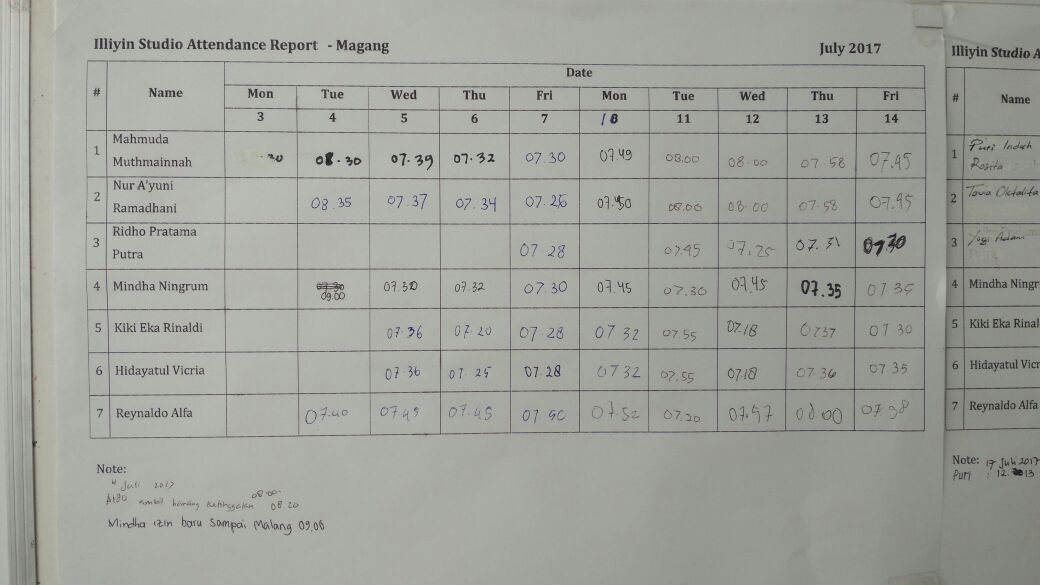 Illiyin Studio Attendance Report - Magang July 2017
# Name Date
Mon Tue Wed Thu Fri Mon Tue Wed Thu Fri
3 4 5 6 7 10 11 12 13 14
1 Mahmuda Muthmainnah 08.30 07.39 07.32 07.30 07.49 08.00 08.00 07 58 07.45
2 Nur A'yuni Ramadhani 08.35 07.37 07.34 07.26 08.00 08.00 07.58 07.45
3 Ridho Pratama Putra 07 28 07.45 07.25 07.31
4 Mindha Ningrum 07.30 09.00 07.30 07.32 07.30 07.45 07.30 07.45 07.35 07 35
5 Kiki Eka Rinaldi 07.36 07.20 07.28 07 32 07.55 07.18 0737 07 30
6 Hidayatul Vicria 07 36 07.25 07.28 0732 07.55 0718 07.36 07.35
7 Reynaldo Alfa 07.40 07.45 07.45 07.52 07.20 07.57 08 00 07.38
Note:
4 Juli 2017
08.00
08.20
Mindha izin baru Sampai Malang 09.00
Illiyin Studio A
# Name
1 Puri Indah Rosita
2 Tavia Oktalita
3 Yogi
4 Mindha Ningr
5 Kiki Eka Rinal
6 Hidayatul Vicr
7 Reynaldo Alfa
Note: 17 Juli 2017
Puri : 12 13